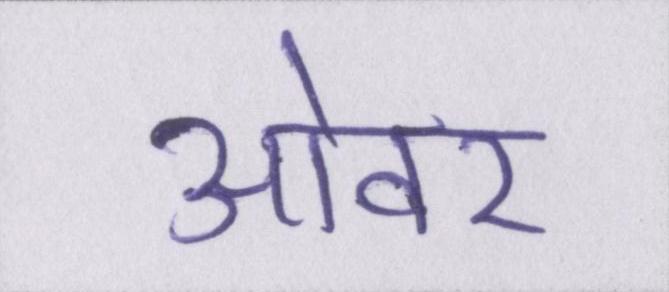 ओवर